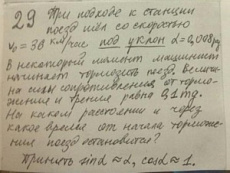 29 При подходе к станции
поезд шёл со скоростью
v₀ = 38 км/час под уклон α = 0,008 рад
В некоторый момент машинист
начинает тормозить поезд. Величи-
на силы сопротивления от тормо-
жения и трения равна 0,1 mg.
На каком расстоянии и через
какое время от начала торможе-
ния поезд остановится?
Принять sinα ≈ α, cosα ≈ 1.